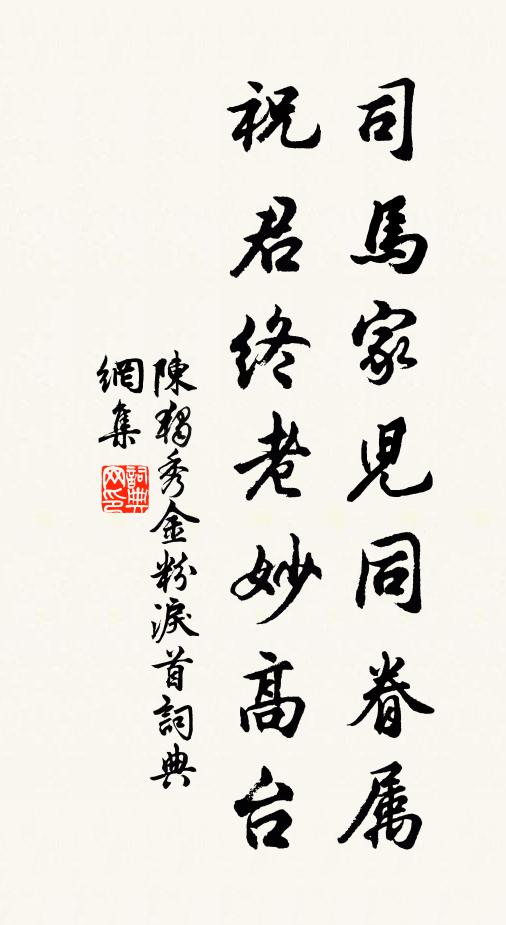 司馬家兒同眷属
祝君終老妙高台
陳独秀金粉淚首詞典
網集
詞典
网印